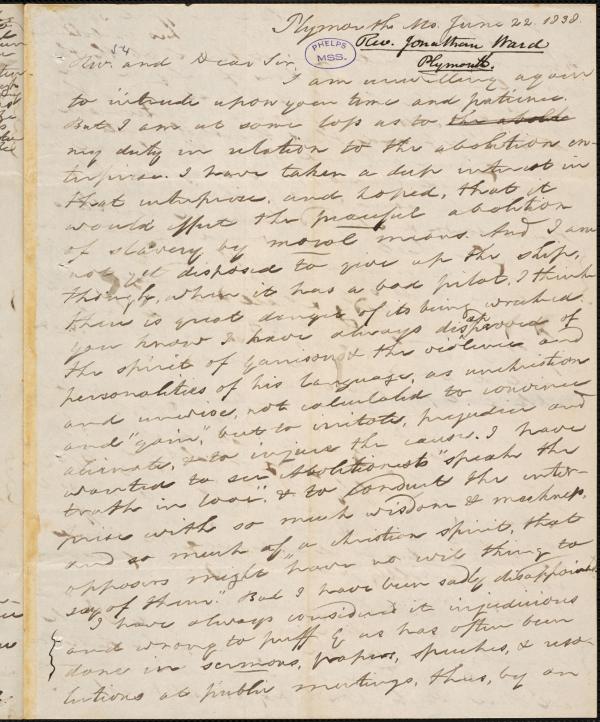 Plymouth Ms. June 22. 1838.
Rev. Jonathan Ward
Plymouth.
PHELPS
MSS.
54
Rev. and Dear Sir,
I am unwilling again
to intrude upon your time and patience.
But I am at some loss as to
my duty in relation to the abolition en-
terprise. I have taken a deep interest in
that enterprise, and hoped, that it
would effect the peaceful abolition
of slavery by moral means. And I am
not yet disposed to give up the ship,
though, when it has a bad pilot, I think
there is great danger of its being wrecked.
you know I have always disapproved of
the spirit of garrison & the violence and
personalities of his language, as unchristian
and unwise, not calculated to convince
and "gain," but to irritate, prejudice and
alienate, & to injure the cause. I have
wanted to see Abolitionists "speak the
truth in love", & to conduct the enter-
prise with so much wisdom & meekness,
and so much of "a christian spirit, that
opposers might "have no evil thing to
say of them." But I have been sadly disappointed.
I have always considered it injudicious
and wrong to puff G as has often been
done in sermons, papers, speeches, & reso-
lutions at public meetings, thus, by an